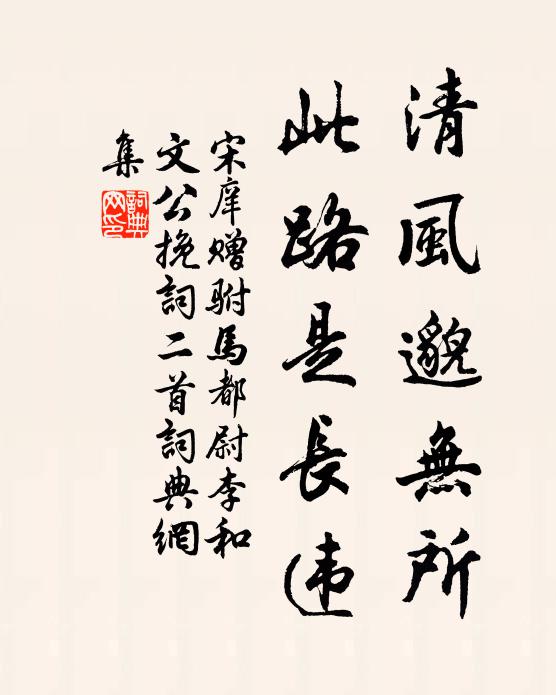 清風邈無所
此路是長违
宋庠赠驸馬都尉李和
文公挽詞二首詞典網
集
詞典網印